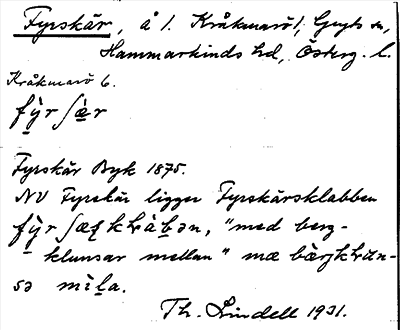 Fyrskär, å l. Kråkmarö l, Gryts sn,
Hammarkinds hd, Österg. l.
Kråkmarö 6.
fỳr ʃæ̀r
Fyrskär Byk 1875.
NV Fyrskär ligger Fyrskärsklabben
fỳr ʃæʈkḷàbən, "med berg-
klunsar mellan" mæ bærjkḷun-
sə mɛ̀la.
Th. Lindell 1931.